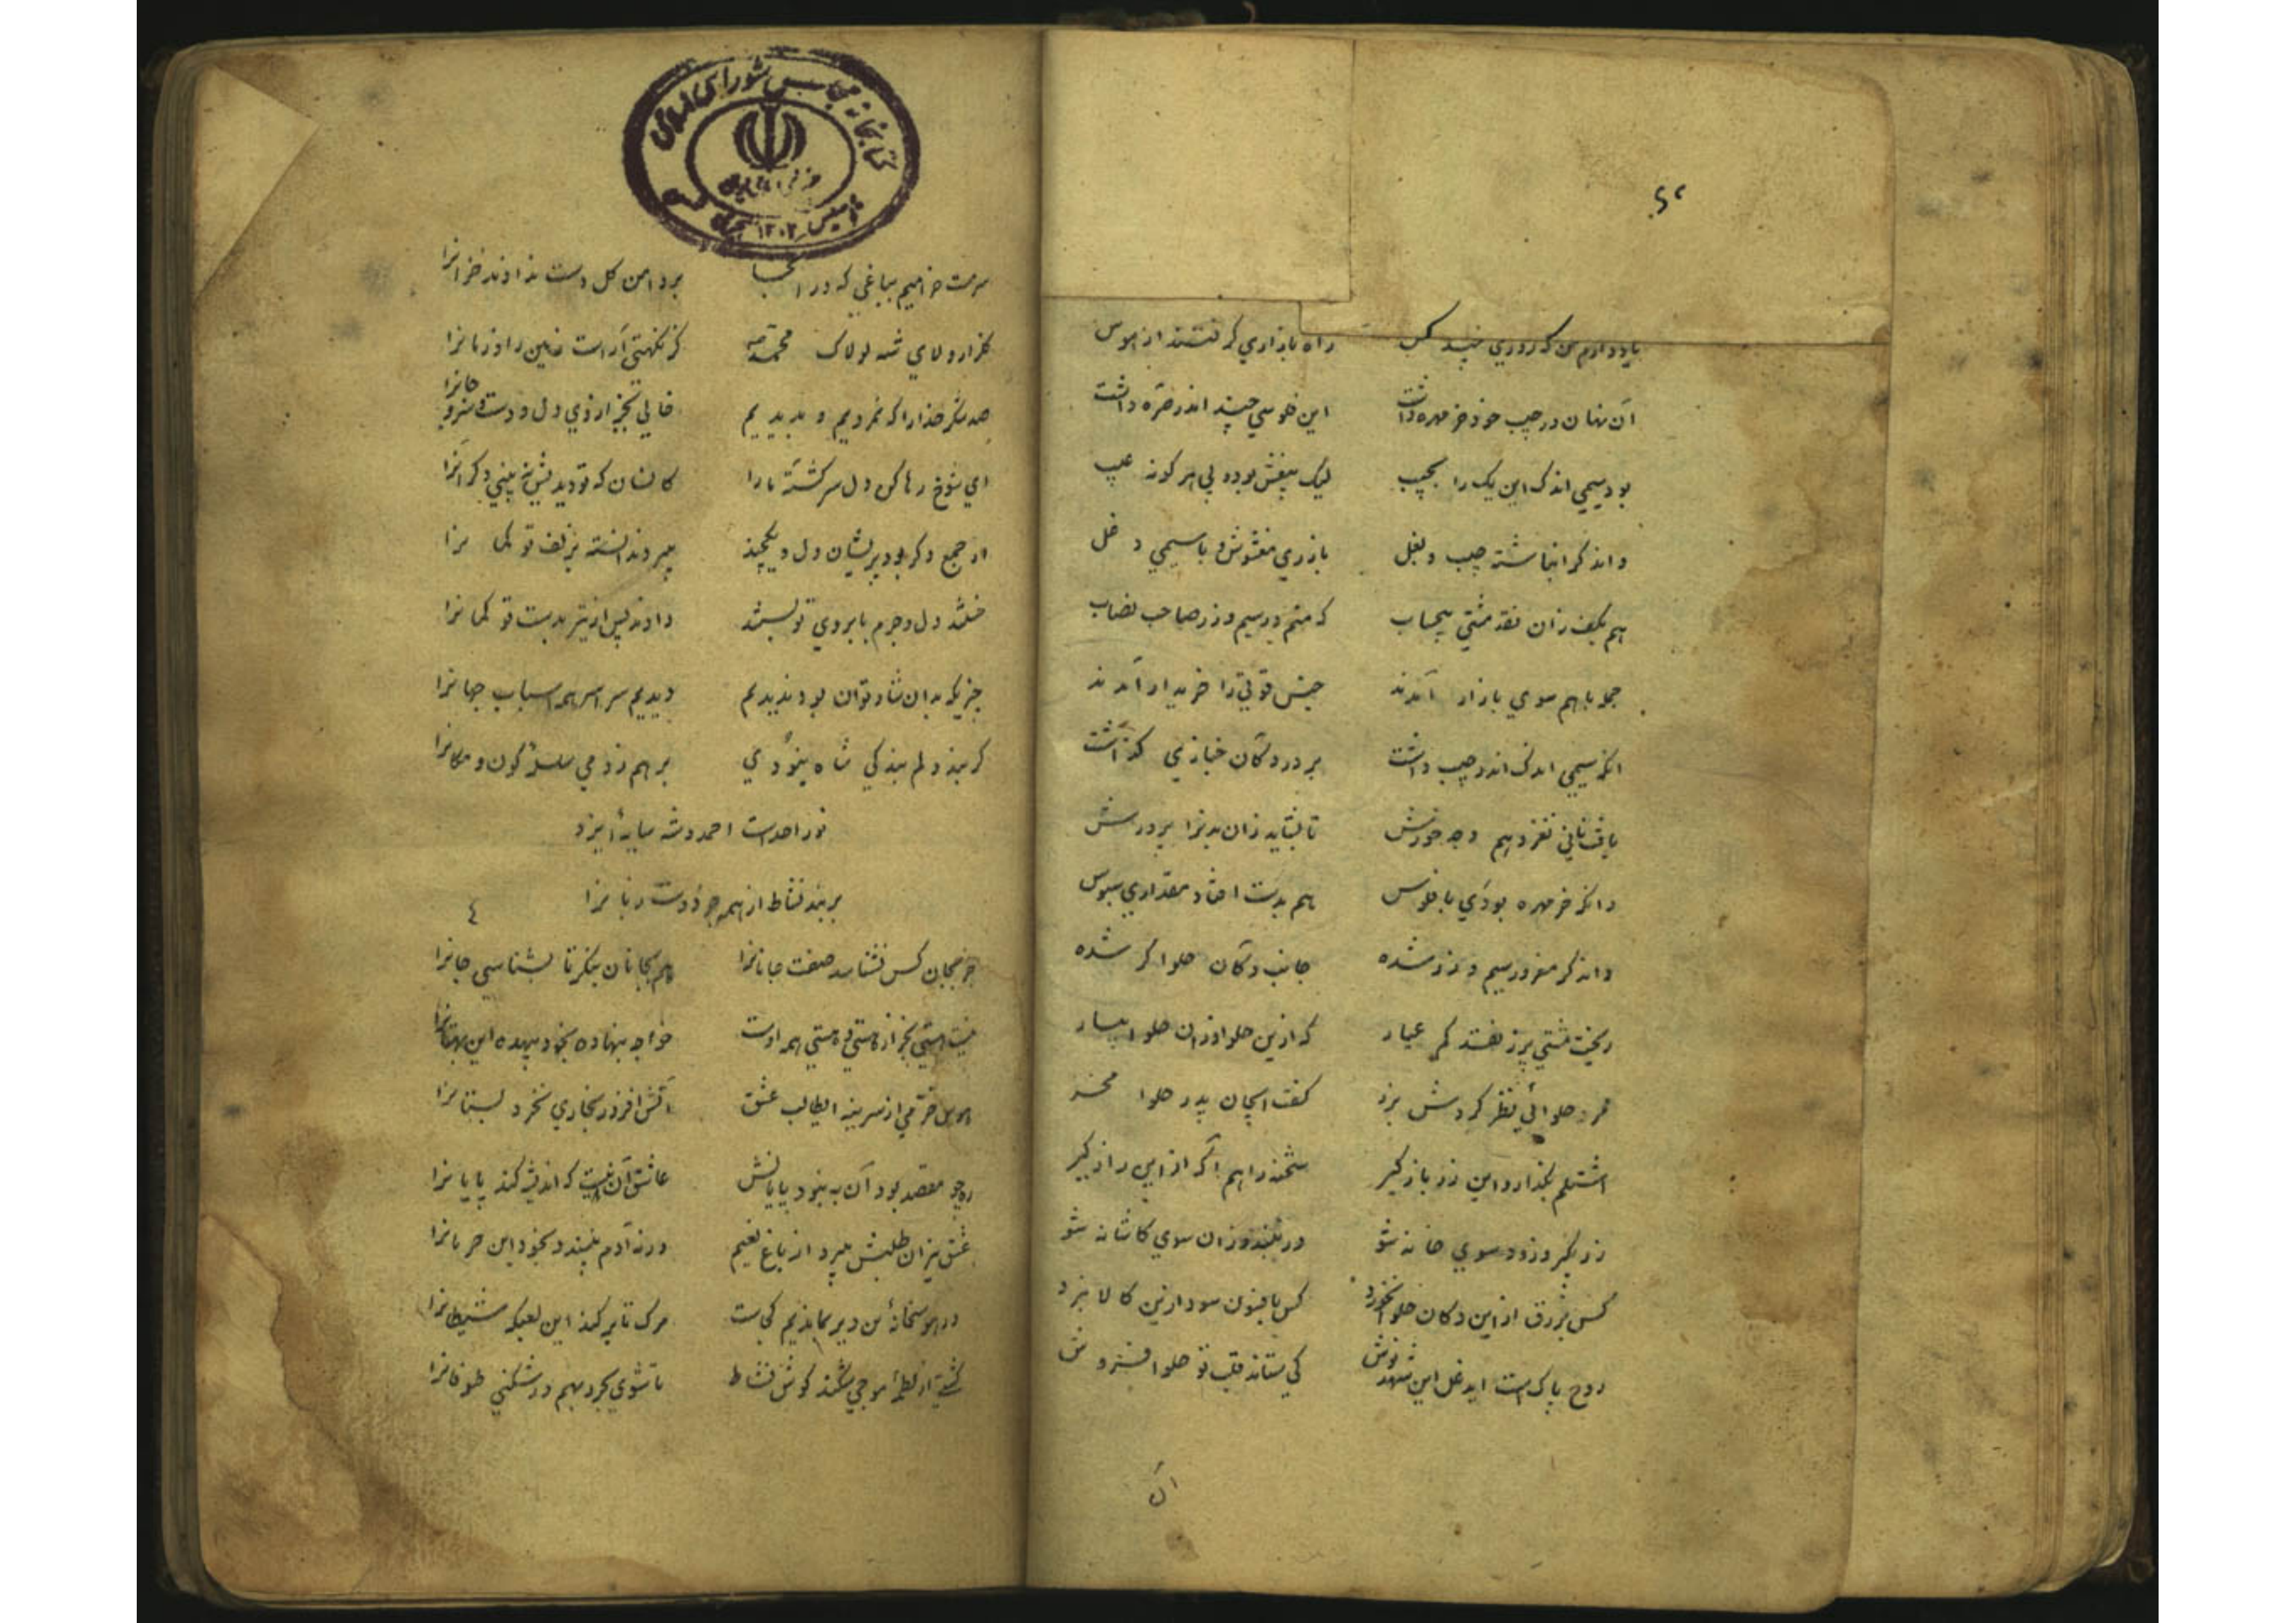 یاد دارم من که روزی چند کس    راه بازاری گرفتند از هوس
آن نهان در جیب خود خر مهره داشت    این فلوسی چند اندر صره داشت
بود سیمی اندک این یک را بجیب    لیک بیغش بود و بی هر گونه عیب
واند گر انباشته جیب و بغل    با زری مغشوش و با سیمی دغل
هم بکف زان نقد مشتی بیحساب    که منم در سیم و زر صاحب نصاب
جمله باهم سوی بازار آمدند    جنس قوتی را خریدار آمدند
انکه سیمی اندک اندر جیب داشت    بر در دکان خبازی گذاشت
یافت نانی نغز و هم وجه خورش    تا بشاید زان بدنرا پرورش
وانکه خر مهره بودی یا فلوس    هم بدست افتاد مقداری سبوس
واند گر مغرور سیم و زر شده    جانب دکان حلواگر شده
ریخت مشتی پر ز نقد کم عیار    که ازین حلوا وزان حلوا بیار
مرد حلوائی نظر کردش بزر    گفت ایجان پدر حلوا مخر
اشتلم بگذار و این زر باز گیر    شحنه را هم آگه از این راز گیر
زر بگیر و زود سوی خانه شو    ور نبندد زان سوی کاشانه شو
کس بزرق از این دکان حلوا نخورد    کس بافسون سود ازین کالا نبرد
روح پاکست ایدغل این شهد نوش    کی ستاند قلب تو حلوا فروش
ان
کتابخانه مجلس شورای اسلامی
تاسیس ۱۳۰۲
سرمست خرامیم بباغی که در انجا    بر دامن گل دست نداوند خزانرا
گلزار ولای شه لولاک محمد    کز نکهتی آراست زمین را و زمانرا
صد شکر خدا را که نمردیم و بدیدیم    خالی بجز از وی دل و دست و سر و جانرا
ای شوخ رها کن دل سرگشته ما را    کانسان که تو دیدیش نه بینی دگر آنرا
از جمع دگر بود پریشان دل و یکچند
خستند دل و جرم بابروی تو بستند    دادند پس از تیر بدست تو کمانرا
جز یکه بدان شاد توان بود ندیدیم    دیدیم سراسر همه اسباب جهانرا
گر بند دلم بندگی شاه نبودی    بر هم زدمی سلسلهٔ کون و مکانرا
نور احدست احمد و شه سایهٔ ایزد
بر بند نشاط از همه جز دوست زبانرا
٤
جز بجان کس نشناسد صفت جانانرا    هم بجانان بنگر تا بشناسی جانرا
نیست هستی بجز از هستی و هستی همه اوست    خواجه بنهاده بخود بیهده این بهتانرا
هوس خرمی از سر بنه ایطالب عشق    آتش افروز بخاری نخرد بستانرا
ره چو مقصد بود آن به نبود پایانش    عاشق آن نیست که اندیشه کند پایانرا
عشق نیزان طلبش میبرد از باغ نعیم    ورنه آدم نپسندد بخود این حرمانرا
در هوسخانهٔ من دیر بماندیم کجاست    مرگ تا پر کند این لعبگه شیطانرا
کشتی از لطمهٔ موجی شکند کوش نشاط    تا شوی بحر و بهم در شکنی طوفانرا